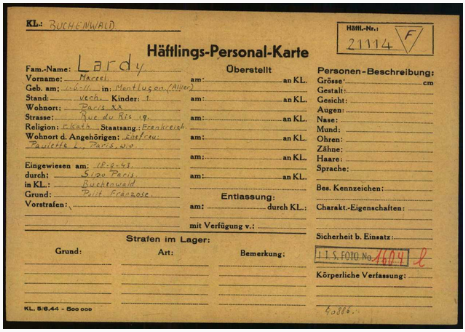 KL.: BUCHENWALD
Häftl.-Nr.:
21114 F
Häftlings-Personal-Karte
Fam.-Name: Lardy
Vorname: Marcel
Geb. am: in: Montluçon (Allier)
Stand: verh. Kinder: 1
Wohnort: Paris XX
Strasse: Rue du
Religion: r. kath. Staatsang.: Frankreich
Wohnort d. Angehörigen: Ehefrau:
Paulette L. Paris, w.o
Eingewiesen am: 18-6-43
durch: Sipo Paris
in KL.: Buchenwald
Grund: Polit. Franzose
Vorstrafen:
Überstellt
am: an KL.
am: an KL.
am: an KL.
am: an KL.
am: an KL.
am: an KL.
Entlassung:
am: durch KL.:
mit Verfügung v.:
Personen-Beschreibung:
Grösse: cm
Gestalt:
Gesicht:
Augen:
Nase:
Mund:
Ohren:
Zähne:
Haare:
Sprache:
Bes. Kennzeichen:
Charakt.-Eigenschaften:
Sicherheit b. Einsatz:
I.T.S. FOTO No. 1604
Körperliche Verfassung:
Strafen im Lager:
Grund: Art: Bemerkung:
KL. 5/6.44 - 500 000